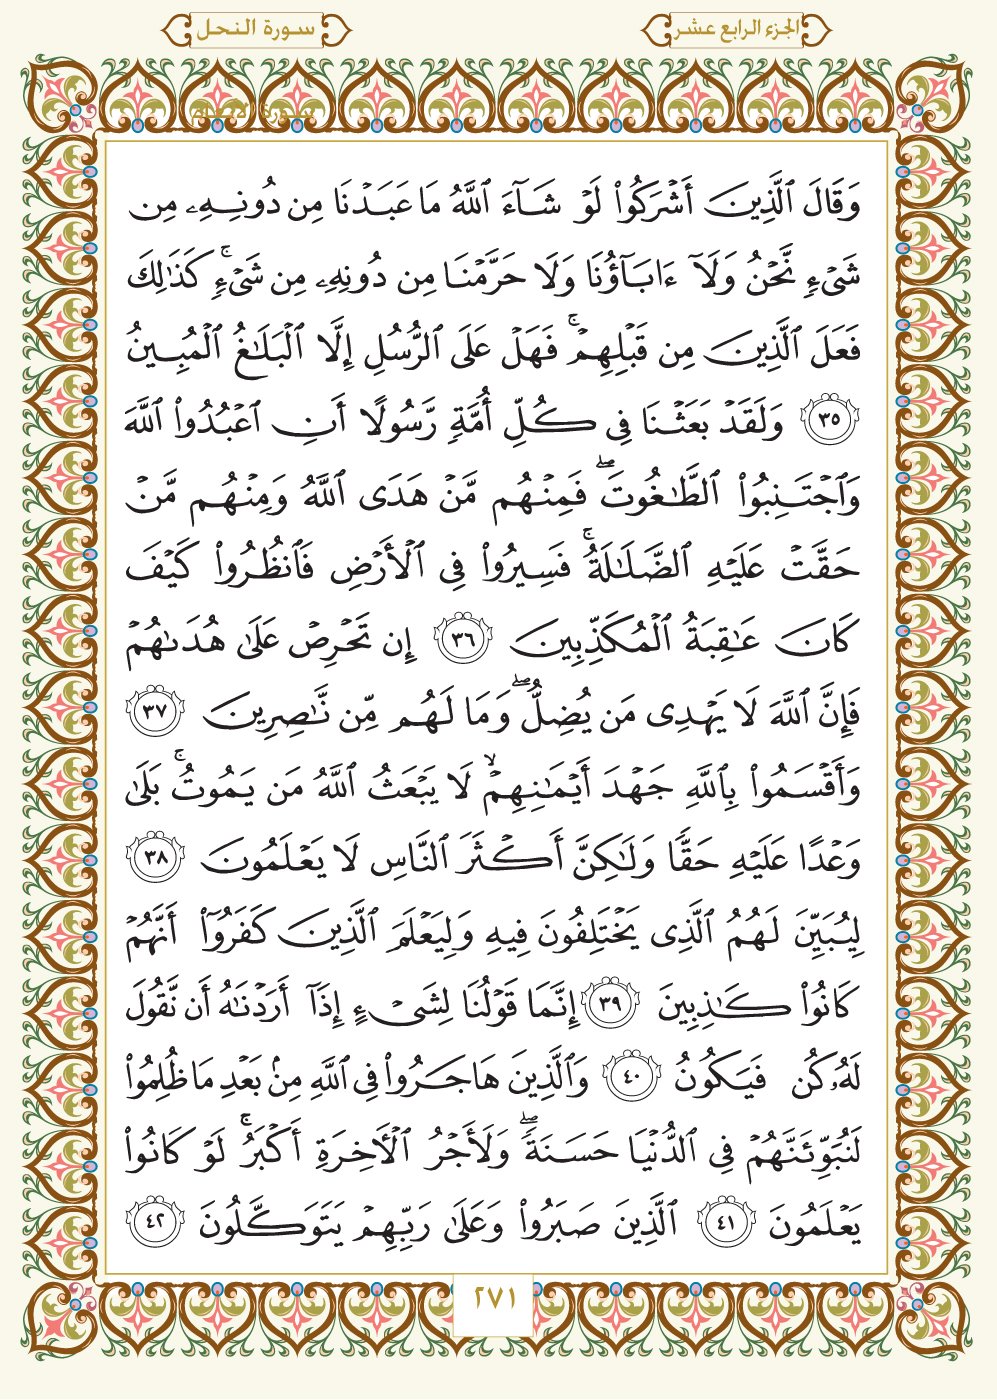 الجزء الرابع عشر
سورة النحل
وَقَالَ ٱلَّذِينَ أَشْرَكُوا۟ لَوْ شَآءَ ٱللَّهُ مَا عَبَدْنَا مِن دُونِهِۦ مِن
شَىْءٍۢ نَّحْنُ وَلَآ ءَابَآؤُنَا وَلَا حَرَّمْنَا مِن دُونِهِۦ مِن شَىْءٍۢ ۚ كَذَٰلِكَ
فَعَلَ ٱلَّذِينَ مِن قَبْلِهِمْ ۚ فَهَلْ عَلَى ٱلرُّسُلِ إِلَّا ٱلْبَلَٰغُ ٱلْمُبِينُ
٣٥ وَلَقَدْ بَعَثْنَا فِى كُلِّ أُمَّةٍۢ رَّسُولًا أَنِ ٱعْبُدُوا۟ ٱللَّهَ
وَٱجْتَنِبُوا۟ ٱلطَّٰغُوتَ ۖ فَمِنْهُم مَّنْ هَدَى ٱللَّهُ وَمِنْهُم مَّنْ
حَقَّتْ عَلَيْهِ ٱلضَّلَٰلَةُ ۚ فَسِيرُوا۟ فِى ٱلْأَرْضِ فَٱنظُرُوا۟ كَيْفَ
كَانَ عَٰقِبَةُ ٱلْمُكَذِّبِينَ ٣٦ إِن تَحْرِصْ عَلَىٰ هُدَىٰهُمْ
فَإِنَّ ٱللَّهَ لَا يَهْدِى مَن يُضِلُّ ۖ وَمَا لَهُم مِّن نَّٰصِرِينَ ٣٧
وَأَقْسَمُوا۟ بِٱللَّهِ جَهْدَ أَيْمَٰنِهِمْ ۙ لَا يَبْعَثُ ٱللَّهُ مَن يَمُوتُ ۚ بَلَىٰ
وَعْدًا عَلَيْهِ حَقًّۭا وَلَٰكِنَّ أَكْثَرَ ٱلنَّاسِ لَا يَعْلَمُونَ ٣٨
لِيُبَيِّنَ لَهُمُ ٱلَّذِى يَخْتَلِفُونَ فِيهِ وَلِيَعْلَمَ ٱلَّذِينَ كَفَرُوٓا۟ أَنَّهُمْ
كَانُوا۟ كَٰذِبِينَ ٣٩ إِنَّمَا قَوْلُنَا لِشَىْءٍ إِذَآ أَرَدْنَٰهُ أَن نَّقُولَ
لَهُۥ كُن فَيَكُونُ ٤٠ وَٱلَّذِينَ هَاجَرُوا۟ فِى ٱللَّهِ مِنۢ بَعْدِ مَا ظُلِمُوا۟
لَنُبَوِّئَنَّهُمْ فِى ٱلدُّنْيَا حَسَنَةًۭ ۖ وَلَأَجْرُ ٱلْـَٔاخِرَةِ أَكْبَرُ ۚ لَوْ كَانُوا۟
يَعْلَمُونَ ٤١ ٱلَّذِينَ صَبَرُوا۟ وَعَلَىٰ رَبِّهِمْ يَتَوَكَّلُونَ ٤٢
٢٧١